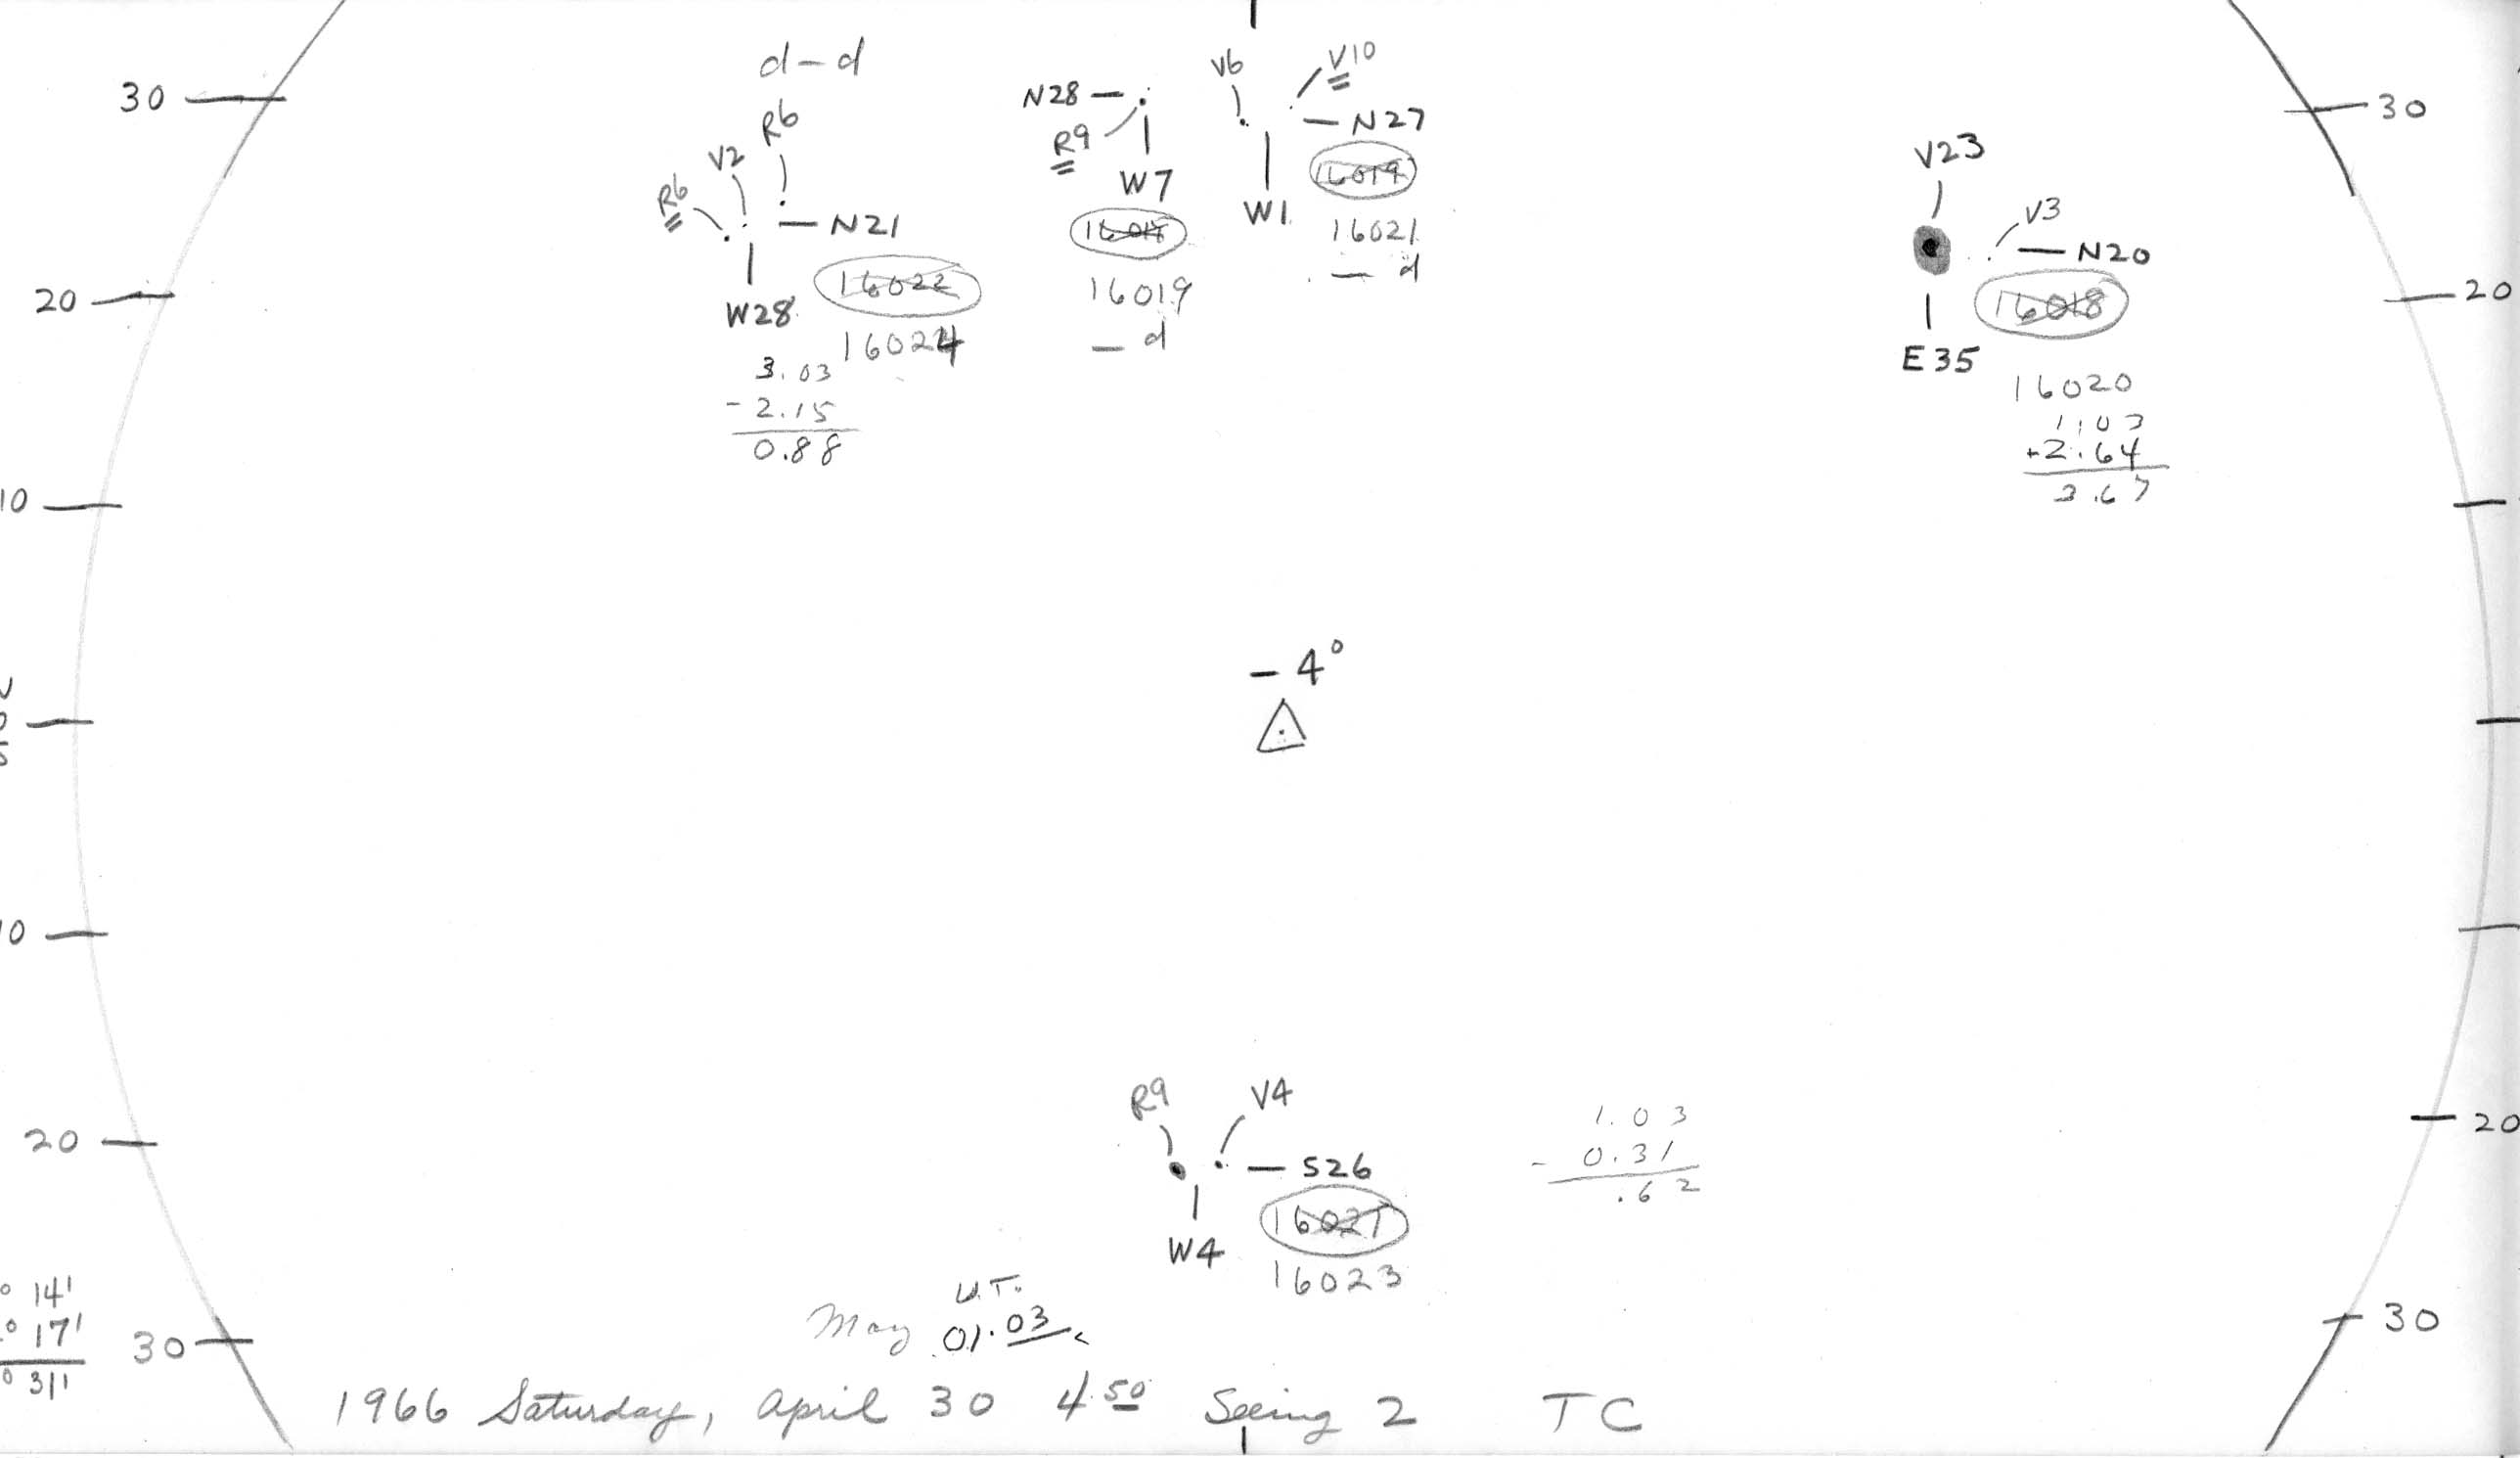 d – d
30
N28 –
V6
V10
30
R6
R9
– N27
V23
V2
W7
16019
R6
– N21
W1
V3
16018
16021
– N20
16022
– d
20
W28
16019
16018
20
16024
– d
E35
3.03
16020
- 2.15
1.03
0.88
+2.64
3.67
10
- 4°
10
R9
V4
1.03
20
20
– S26
- 0.31
.62
16021
W4
16023
14'
U.T.
17'
May 01.03
30
30
31'
1966 Saturday, April 30 4 50 Seeing 2 TC